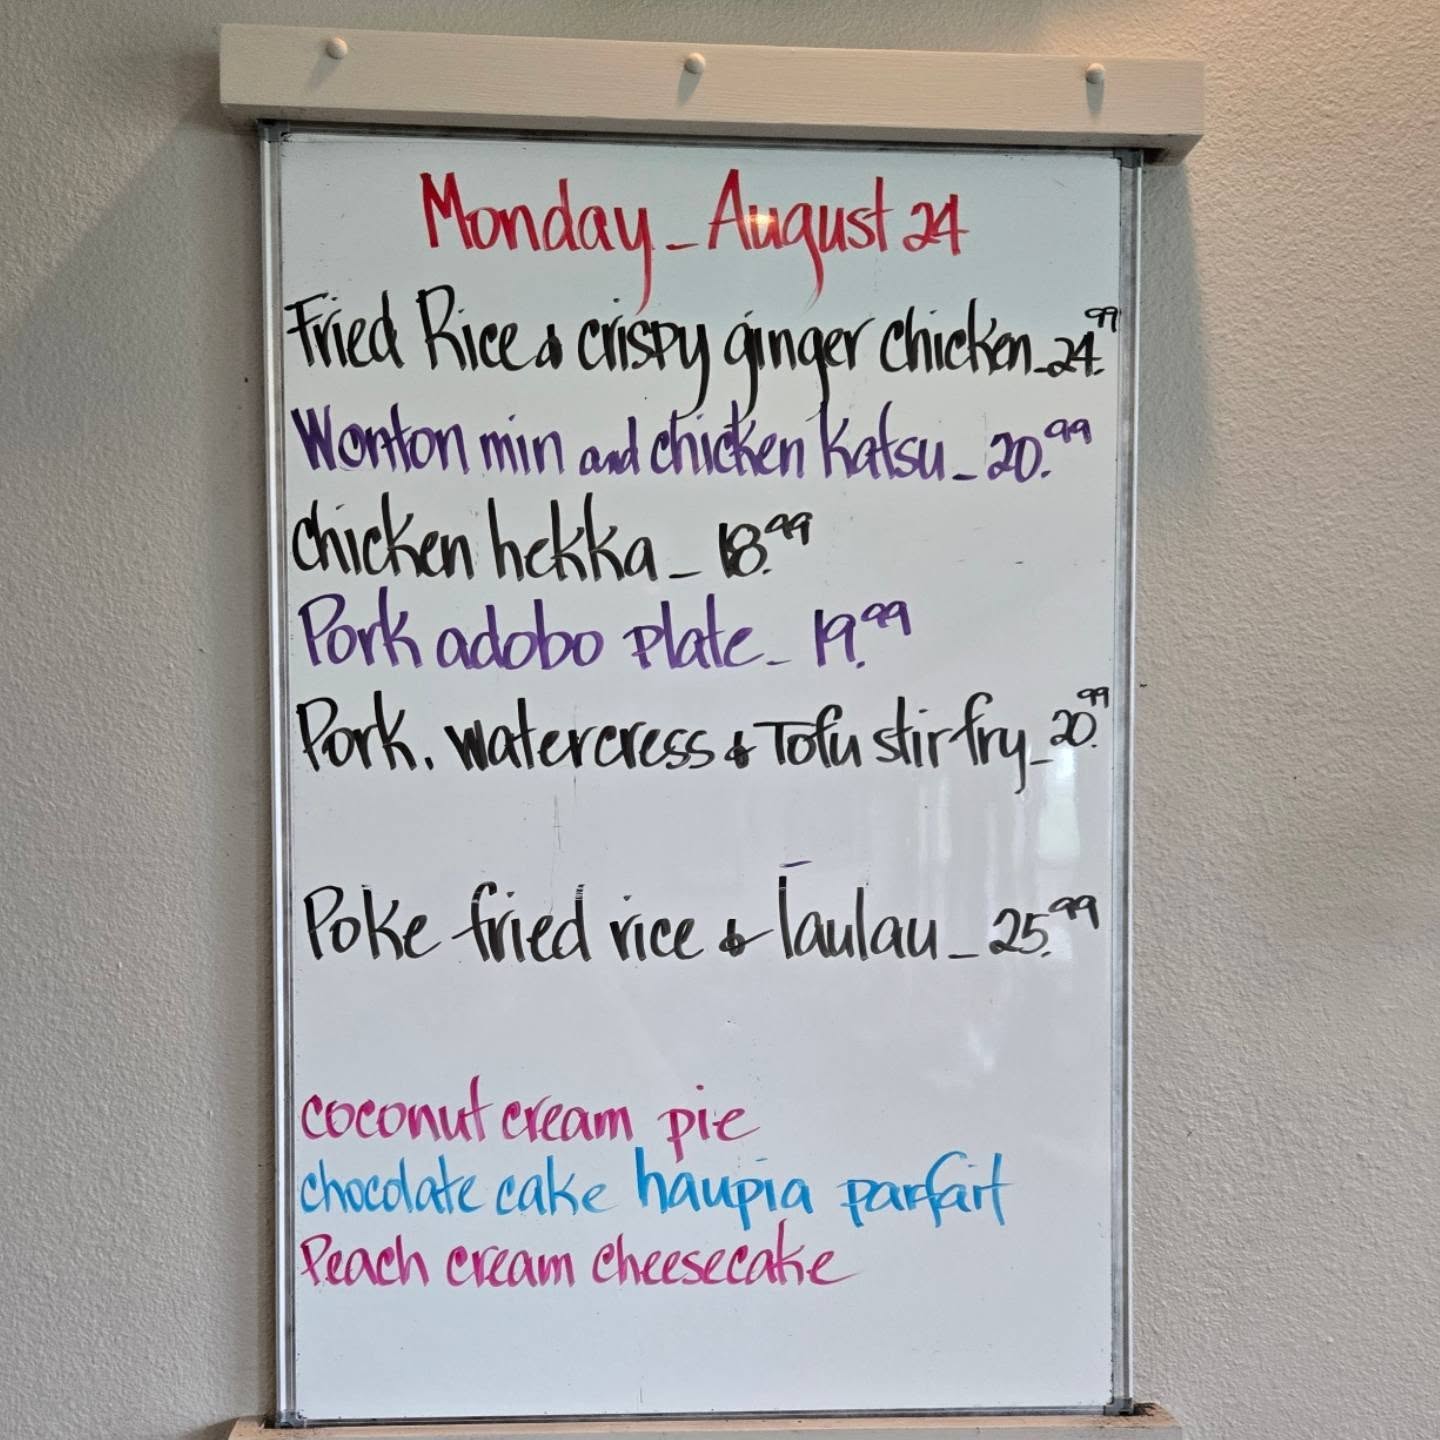 Monday - August 24
Fried Rice & crispy ginger chicken - 24.99
Wonton min and chicken katsu - 20.99
chicken hekka - 18.99
Pork adobo plate - 19.99
Pork, watercress & Tofu stir fry - 20.99
Poke fried rice & laulau - 25.99
coconut cream pie
chocolate cake haupia parfait
Peach cream cheesecake